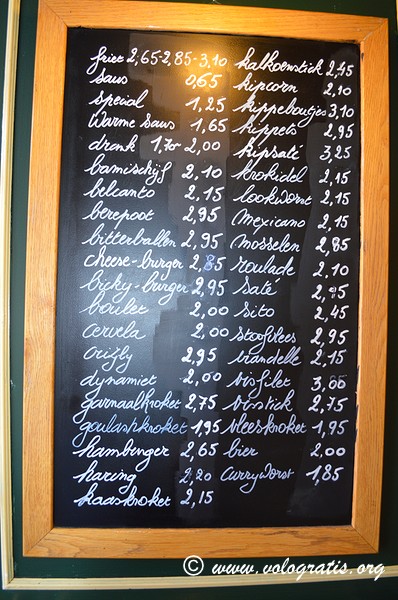 friet 2,65-2,85-3,10
saus 0,65
special 1,25
Warme saus 1,65
drank 1,70 2,00
bamischijf 2,10
belcanto 2,15
berepoot 2,95
bitterballen 2,95
cheese-burger 2,85
bicky-burger 2,95
boulet 2,00
cervela 2,00
grizly 2,95
dynamiet 2,00
garnaalkroket 2,75
goulashkroket 1,95
hamburger 2,65
haring 2,20
kaaskroket 2,15
kalkoenstick 2,45
kipcorn 2,10
kippeboutjes 3,10
kippets 2,95
kipsaté 3,25
krokidel 2,15
lookworst 2,15
mexicano 2,15
mosselen 2,85
roulade 2,10
saté
sito 2,45
stoofvlees 2,95
viandelle 2,15
visfilet 3,00
vistick 2,75
vleeskroket 1,95
bier 2,00
curryworst 1,85
© www.vologratis.org